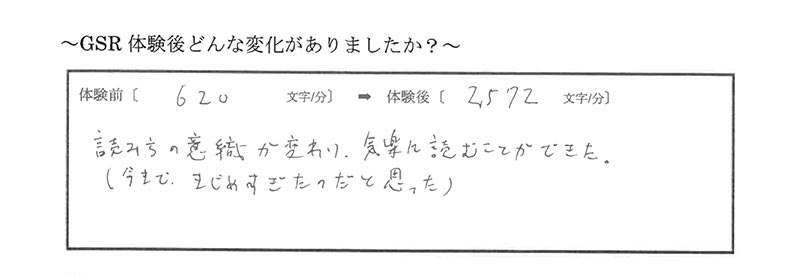 ～GSR 体験後どんな変化がありましたか？～
体験前〔 620 文字/分〕 ➡ 体験後〔 2,572 文字/分〕
読み方の意識が変わり、気楽に読むことができた。
(今まで、まじめすぎたのだと思った)